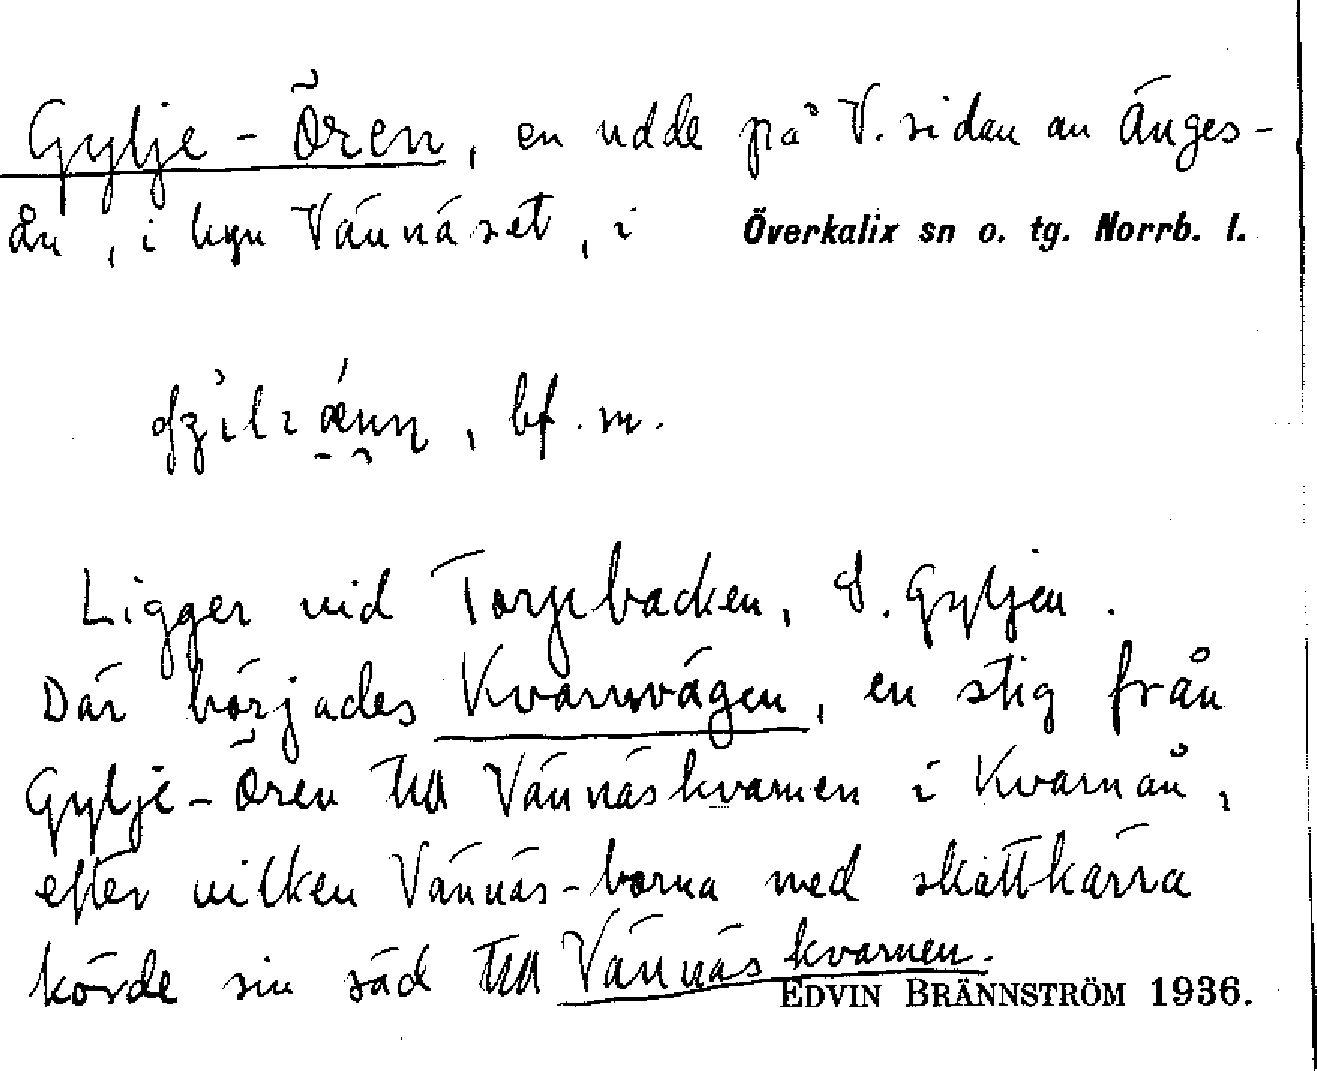 Gylje-Ören, en udde på V. sidan av Änges-
ån, i byn Vännäset, i Överkalix sn o. tg. Norrb. l.
, bf. m.
Ligger vid Torpbacken, S. Gyljen.
Där börjades Kvarnvägen, en stig från
Gylje-Ören till Vännäskvarnen i Kvarnån,
efter vilken Vännäs-borna med skottkärra
körde sin säd till Vännäskvarnen.
EDVIN BRÄNNSTRÖM 1936.